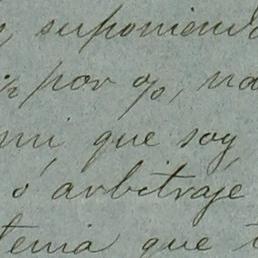 suponiendo
por %, na
mi, que soy
ó arbitraje
tenia que